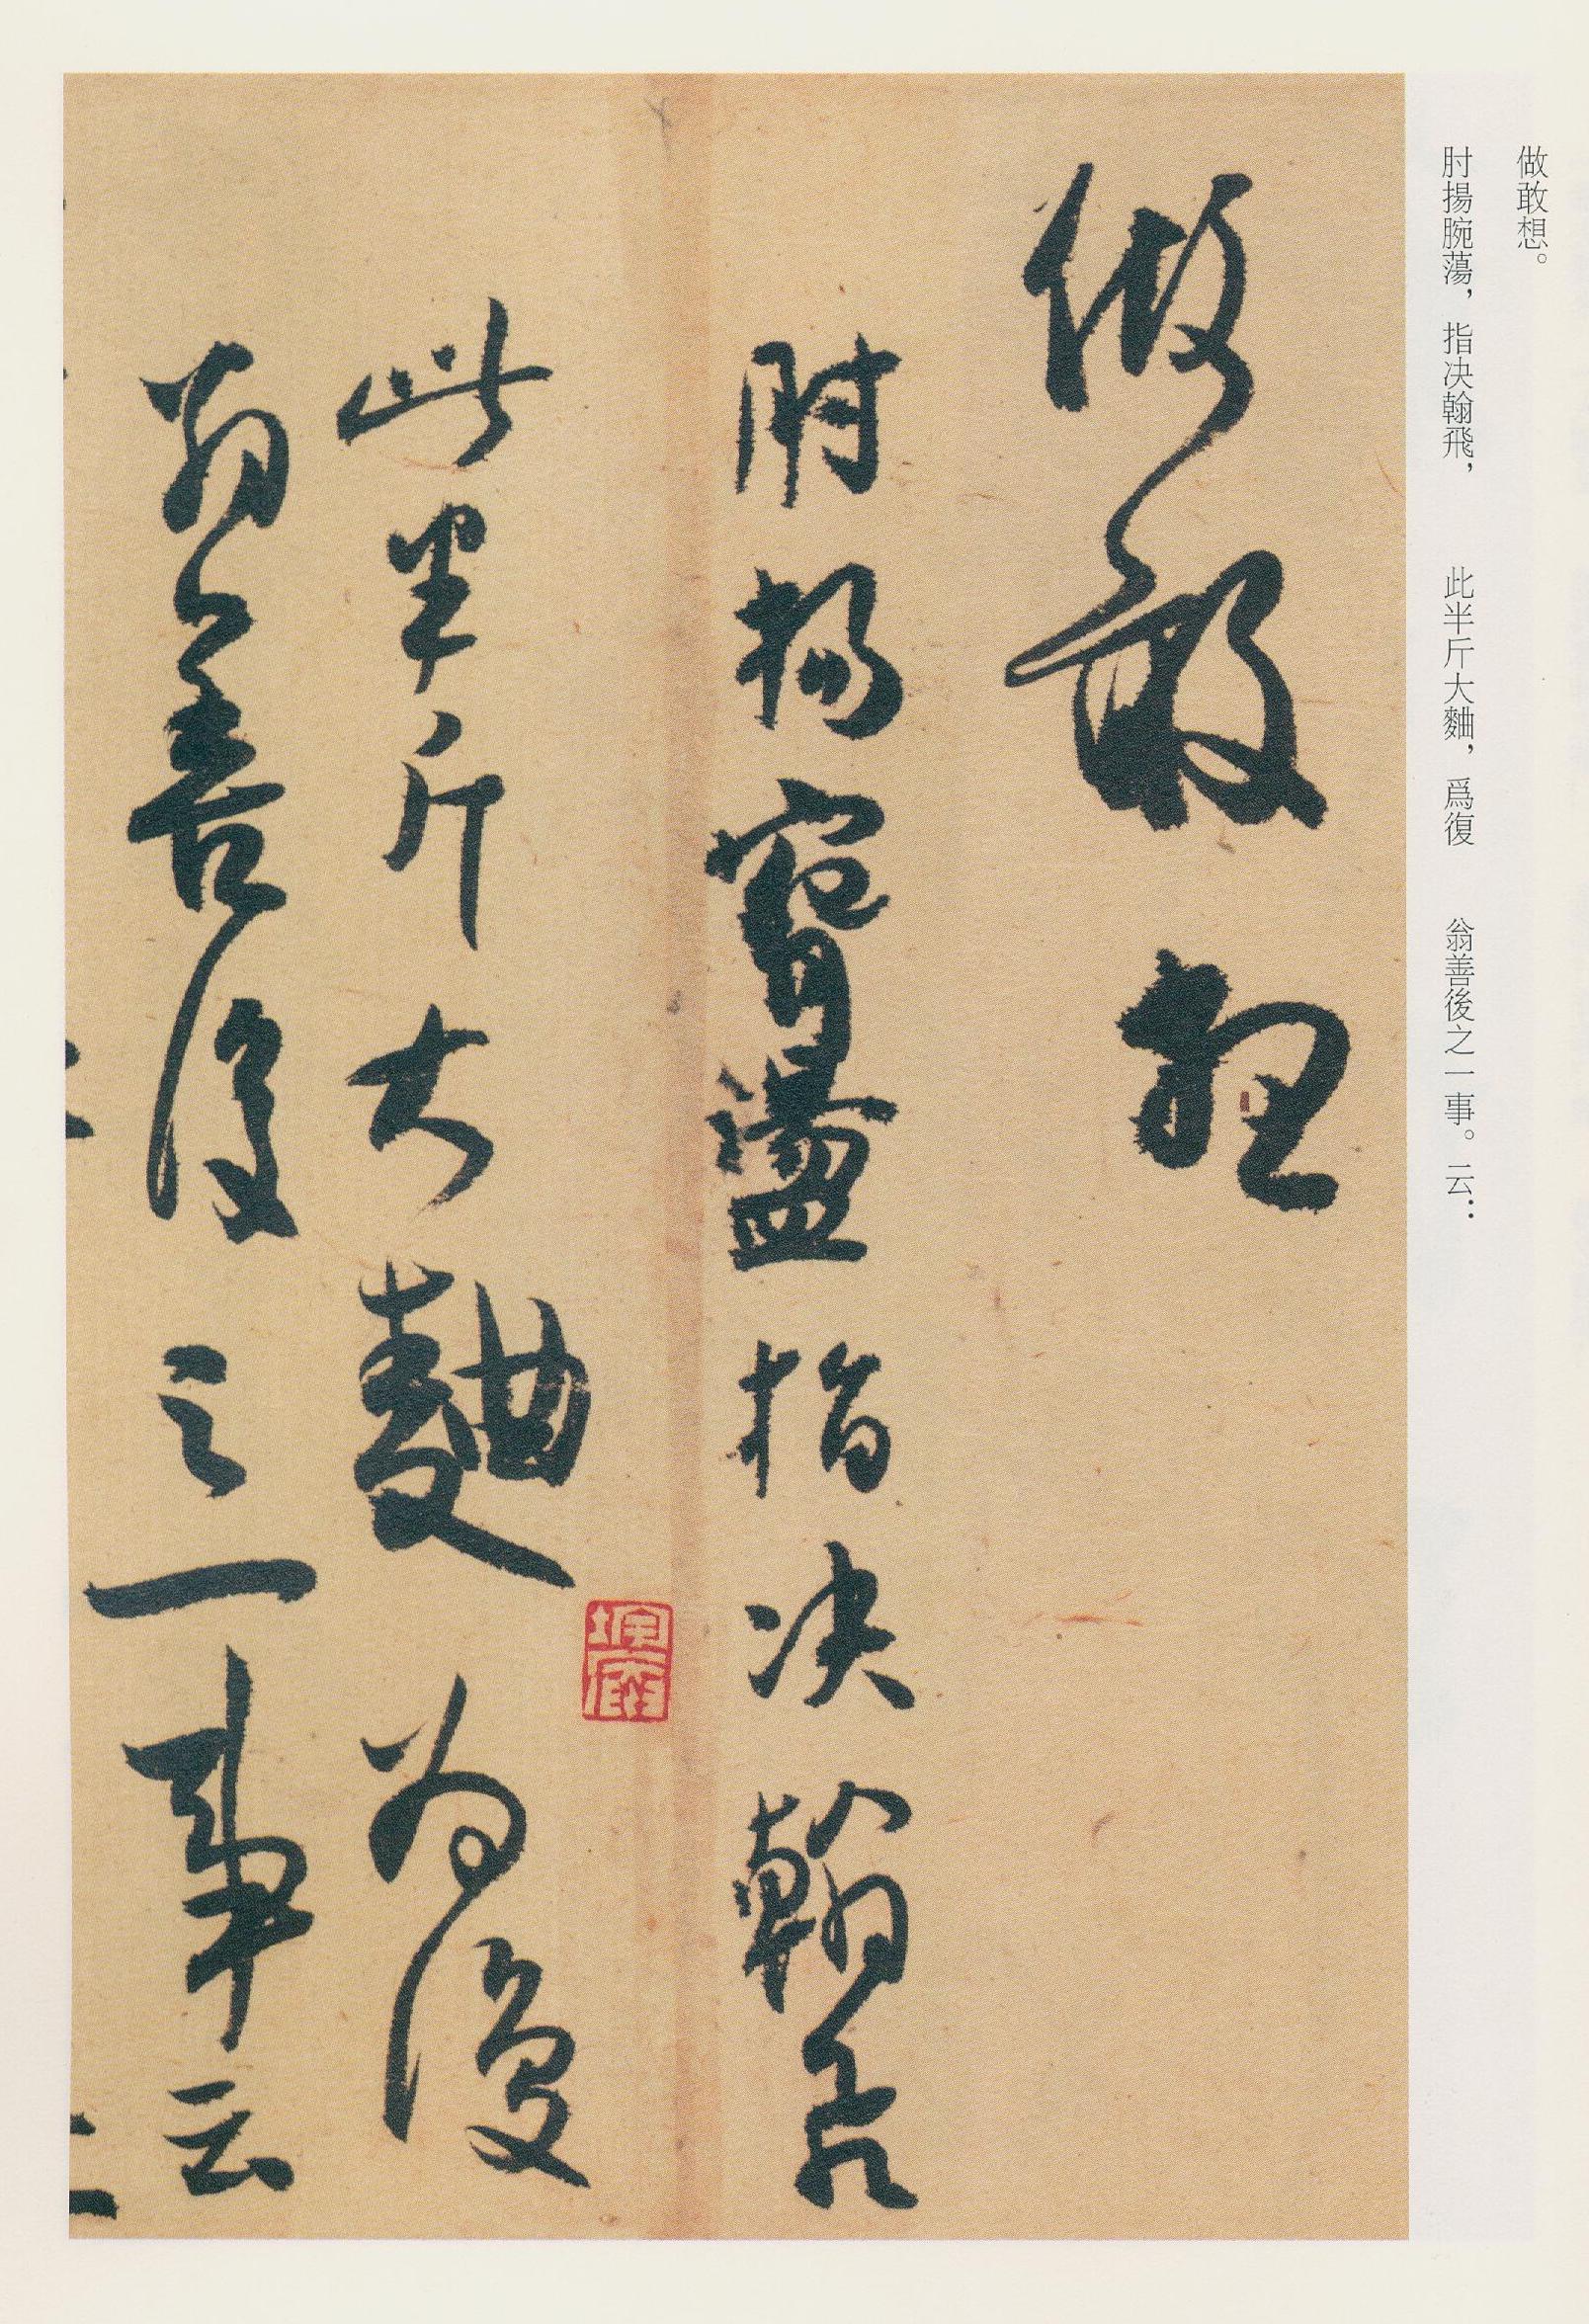 做敢想。
肘揚腕蕩，指決翰飛，　此半斤大麯，爲復　翁善後之一事。云：
做敢想
肘揚腕蕩指决翰飛
此半斤大麯为復
翁善後之一事云